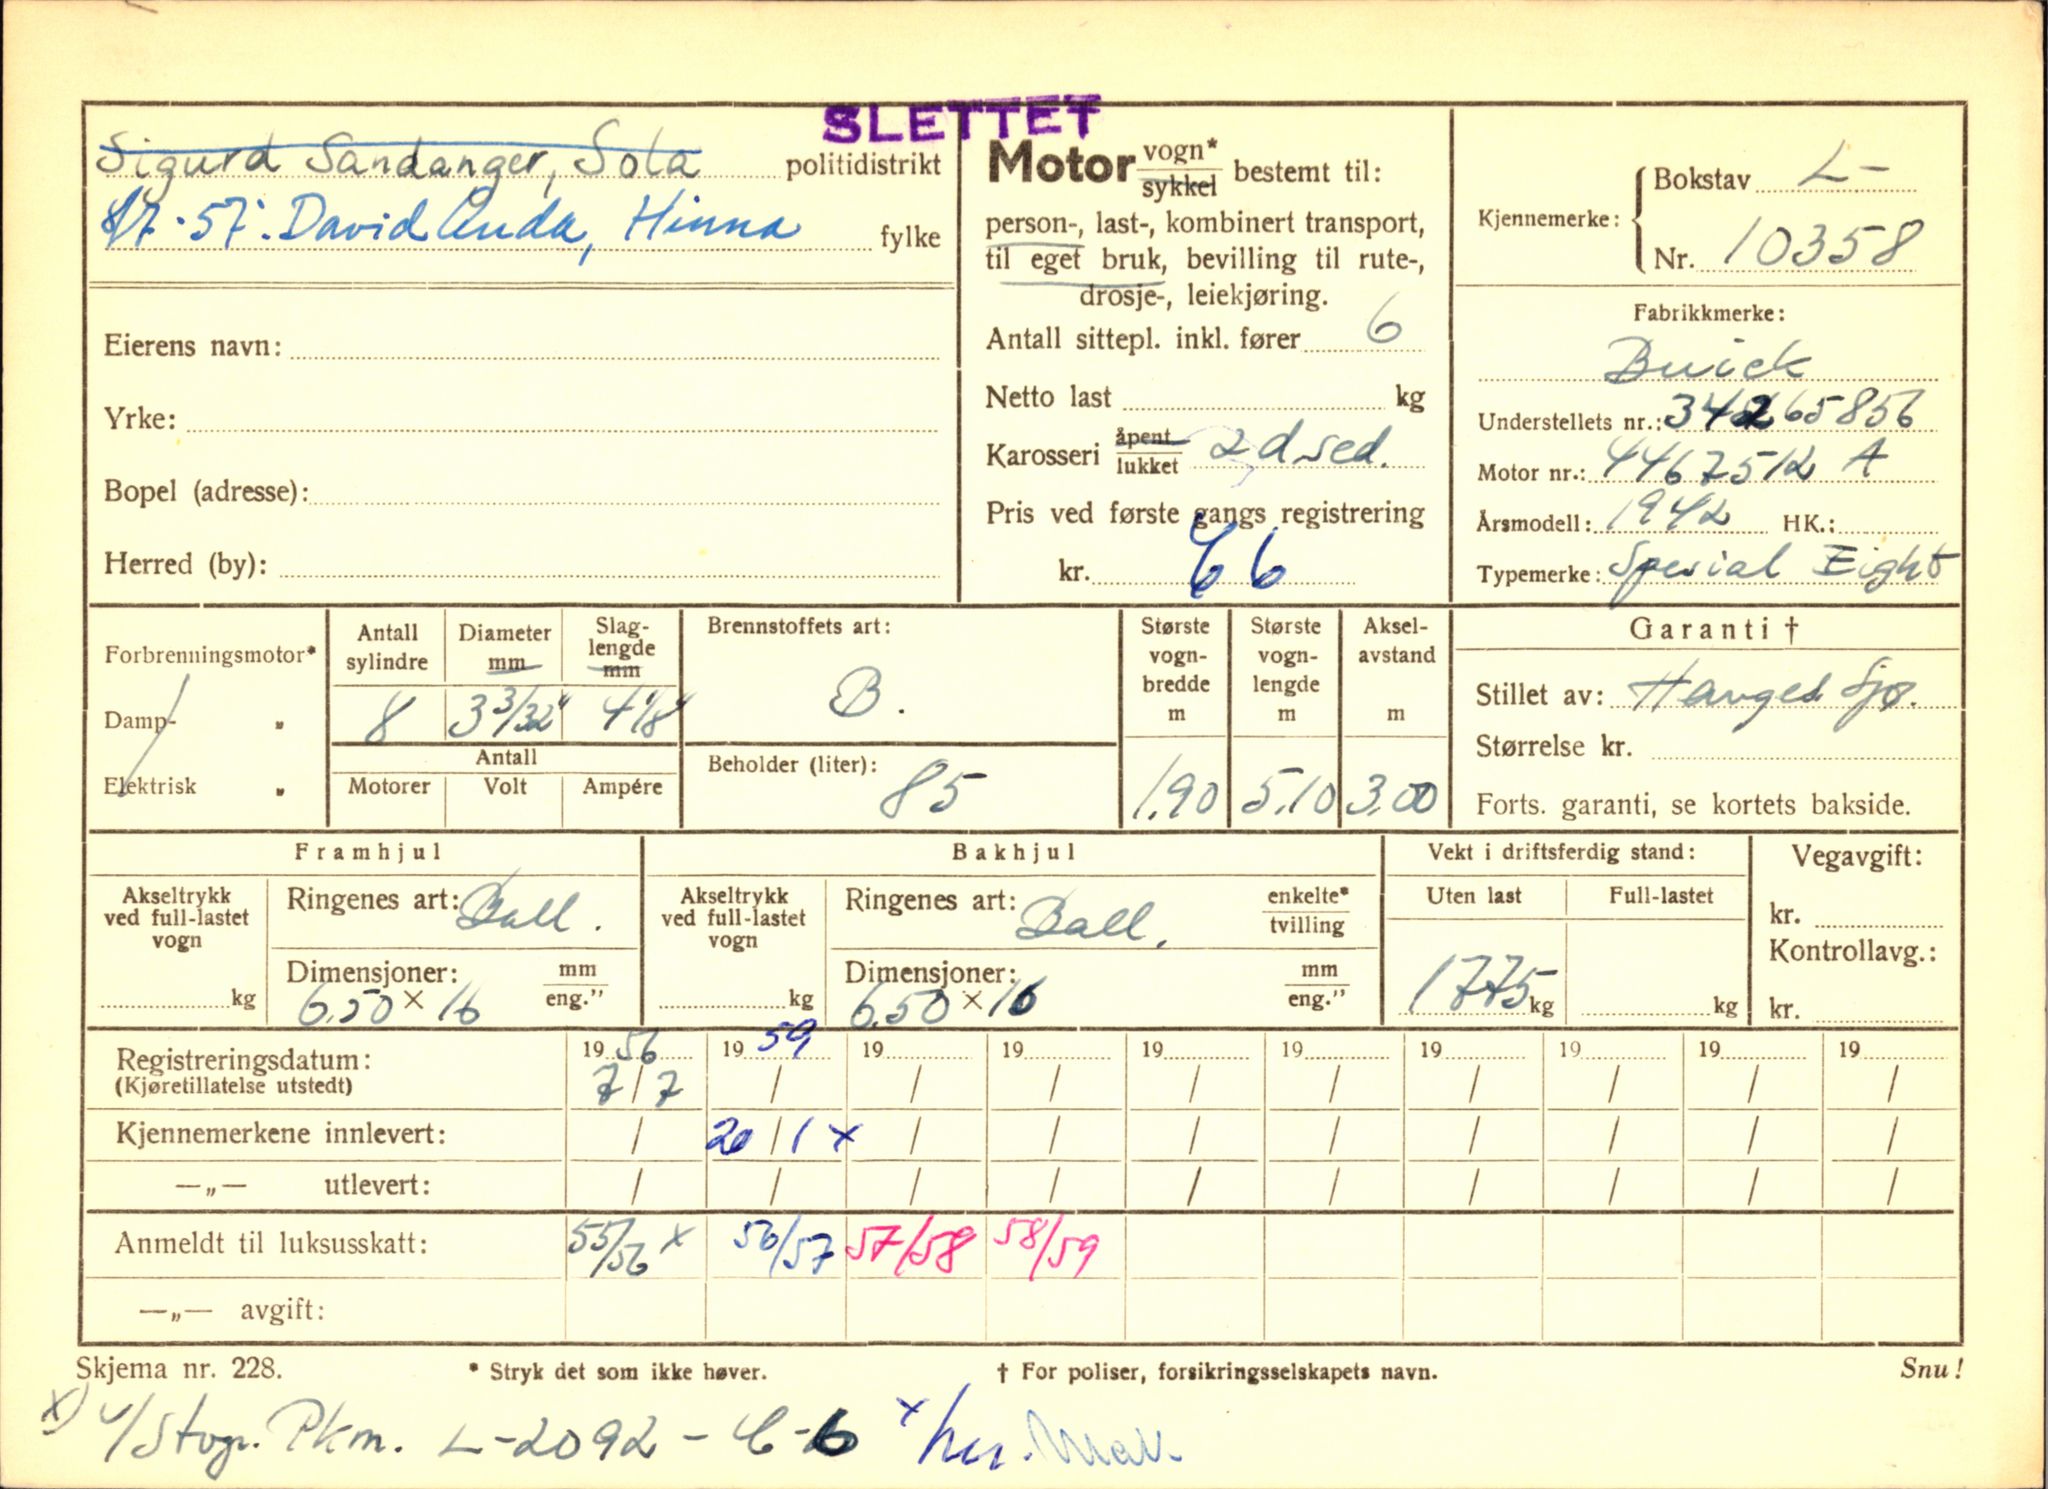 SLETTET
Sigurd Sandanger, Sola politidistrikt
7-57: David Anda, Hinna fylke
Eierens navn:
Yrke:
Bopel (adresse):
Herred (by):
Motor vogn* / sykkel bestemt til:
person-, last-, kombinert transport,
til eget bruk, bevilling til rute-,
drosje-, leiekjøring.
Antall sittepl. inkl. fører 6
Netto last kg
Karosseri åpent / lukket 2 d sed.
Pris ved første gangs registrering
kr. 66
Kjennemerke: Bokstav L-
Nr. 10358
Fabrikkmerke:
Buick
Understellets nr.: 34265856
Motor nr.: 4467512 A
Årsmodell: 1942 HK.:
Typemerke: Spesial Eight
Forbrenningsmotor*
Damp- „
Elektrisk „
Antall sylindre Diameter mm Slaglengde mm
8 3 3/32" 4 1/8"
Antall
Motorer Volt Ampére
Brennstoffets art:
B.
Beholder (liter):
85
Største vognbredde m Største vognlengde m Akselavstand m
1.90 5.10 3.00
Garanti †
Stillet av: Hauges Sjø.
Størrelse kr.
Forts. garanti, se kortets bakside.
Framhjul
Akseltrykk ved full-lastet vogn
kg
Ringenes art: Ball.
Dimensjoner: mm / eng."
6.50 × 16
Bakhjul
Akseltrykk ved full-lastet vogn
kg
Ringenes art: Ball. enkelte* / tvilling
Dimensjoner: mm / eng."
6.50 × 16
Vekt i driftsferdig stand:
Uten last Full-lastet
1775 kg kg
Vegavgift:
kr.
Kontrollavg.:
kr.
Registreringsdatum: 19 56 19 59 19 19 19 19 19 19 19 19
(Kjøretillatelse utstedt) 7/7 / / / / / / / / /
Kjennemerkene innlevert: / 20/1 x / / / / / / / /
—„— utlevert: / / / / / / / / / /
Anmeldt til luksusskatt: 55/56 x 56/57 57/58 58/59
—„— avgift:
Skjema nr. 228. * Stryk det som ikke høver. † For poliser, forsikringsselskapets navn. Snu!
x) L-2092 -